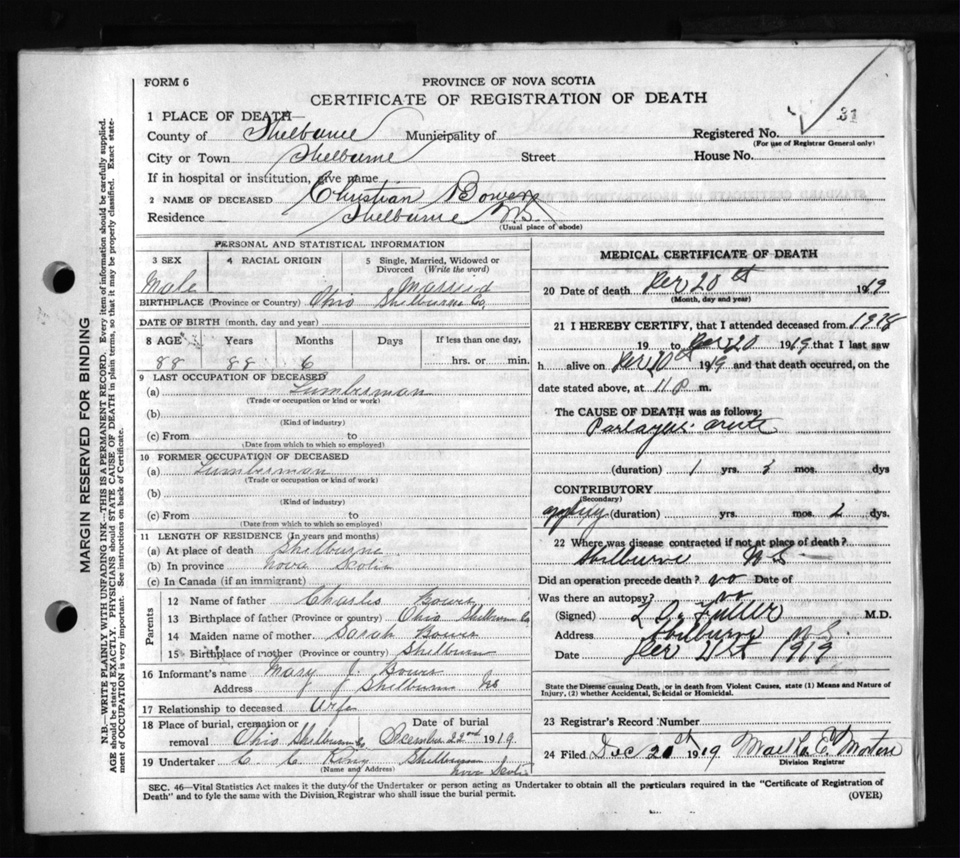 FORM 6
PROVINCE OF NOVA SCOTIA
CERTIFICATE OF REGISTRATION OF DEATH
1 PLACE OF DEATH
County of Shelburne Municipality of
Registered No. 31
(For use of Registrar General only)
City or Town Shelburne Street House No.
If in hospital or institution, give name
2 NAME OF DECEASED Christian Bower
Residence Shelburne N.S.
(Usual place of abode)
PERSONAL AND STATISTICAL INFORMATION
3 SEX
4 RACIAL ORIGIN
5 Single, Married, Widowed or Divorced (Write the word)
Male Married
BIRTHPLACE (Province or Country) Ohio Shelburne Co.
DATE OF BIRTH (month, day and year)
8 AGE Years Months Days If less than one day,
88 88 6 hrs. or min.
9 LAST OCCUPATION OF DECEASED
(a) Lumberman
(Trade or occupation or kind of work)
(b)
(Kind of industry)
(c) From to
(Date from which to which so employed)
10 FORMER OCCUPATION OF DECEASED
(a) Lumberman
(Trade or occupation or kind of work)
(b)
(Kind of industry)
(c) From to
(Date from which to which so employed)
11 LENGTH OF RESIDENCE (In years and months)
(a) At place of death Shelburne
(b) In province Nova Scotia
(c) In Canada (if an immigrant)
Parents
12 Name of father Charles Bower
13 Birthplace of father (Province or country) Ohio Shelburne Co
14 Maiden name of mother Sarah Bower
15 Birthplace of mother (Province or country) Shelburn
16 Informant's name Mary J. Bower
Address Shelburn NS
17 Relationship to deceased Wife
18 Place of burial, cremation or removal Ohio Shelburn Co
Date of burial December 22nd 1919
19 Undertaker C. C. King Shelburne
(Name and Address) Nova Scotia
MEDICAL CERTIFICATE OF DEATH
20 Date of death Dec 20th 1919
(Month, day and year)
21 I HEREBY CERTIFY, that I attended deceased from 1918
19 to Dec 20 1919 that I last saw
h alive on Dec 20th 1919 and that death occurred, on the
date stated above, at 11 p m.
The CAUSE OF DEATH was as follows:
(duration) 1 yrs. 3 mos. dys
CONTRIBUTORY
(Secondary)
(duration) yrs. mos. 2 dys.
22 Where was disease contracted if not at place of death?
Shelburne N S
Did an operation precede death? no Date of
Was there an autopsy? no
(Signed) L. O. Fuller M.D.
Address Shelburne N.S.
Date Dec 21st 1919
State the Disease causing Death, or in death from Violent Causes, state (1) Means and Nature of
Injury, (2) whether Accidental, Suicidal or Homicidal.
23 Registrar's Record Number
24 Filed Dec 20st 1919 Martha E. Morton
Division Registrar
SEC. 46—Vital Statistics Act makes it the duty of the Undertaker or person acting as Undertaker to obtain all the particulars required in the "Certificate of Registration of
Death" and to fyle the same with the Division Registrar who shall issue the burial permit.
(OVER)
MARGIN RESERVED FOR BINDING
N.B.—WRITE PLAINLY WITH UNFADING INK—THIS IS A PERMANENT RECORD. Every item of information should be carefully supplied.
AGE should be stated EXACTLY. PHYSICIANS should STATE CAUSE OF DEATH in plain terms, so that it may be properly classified. Exact state-
ment of OCCUPATION is very important. See instructions on back of Certificate.